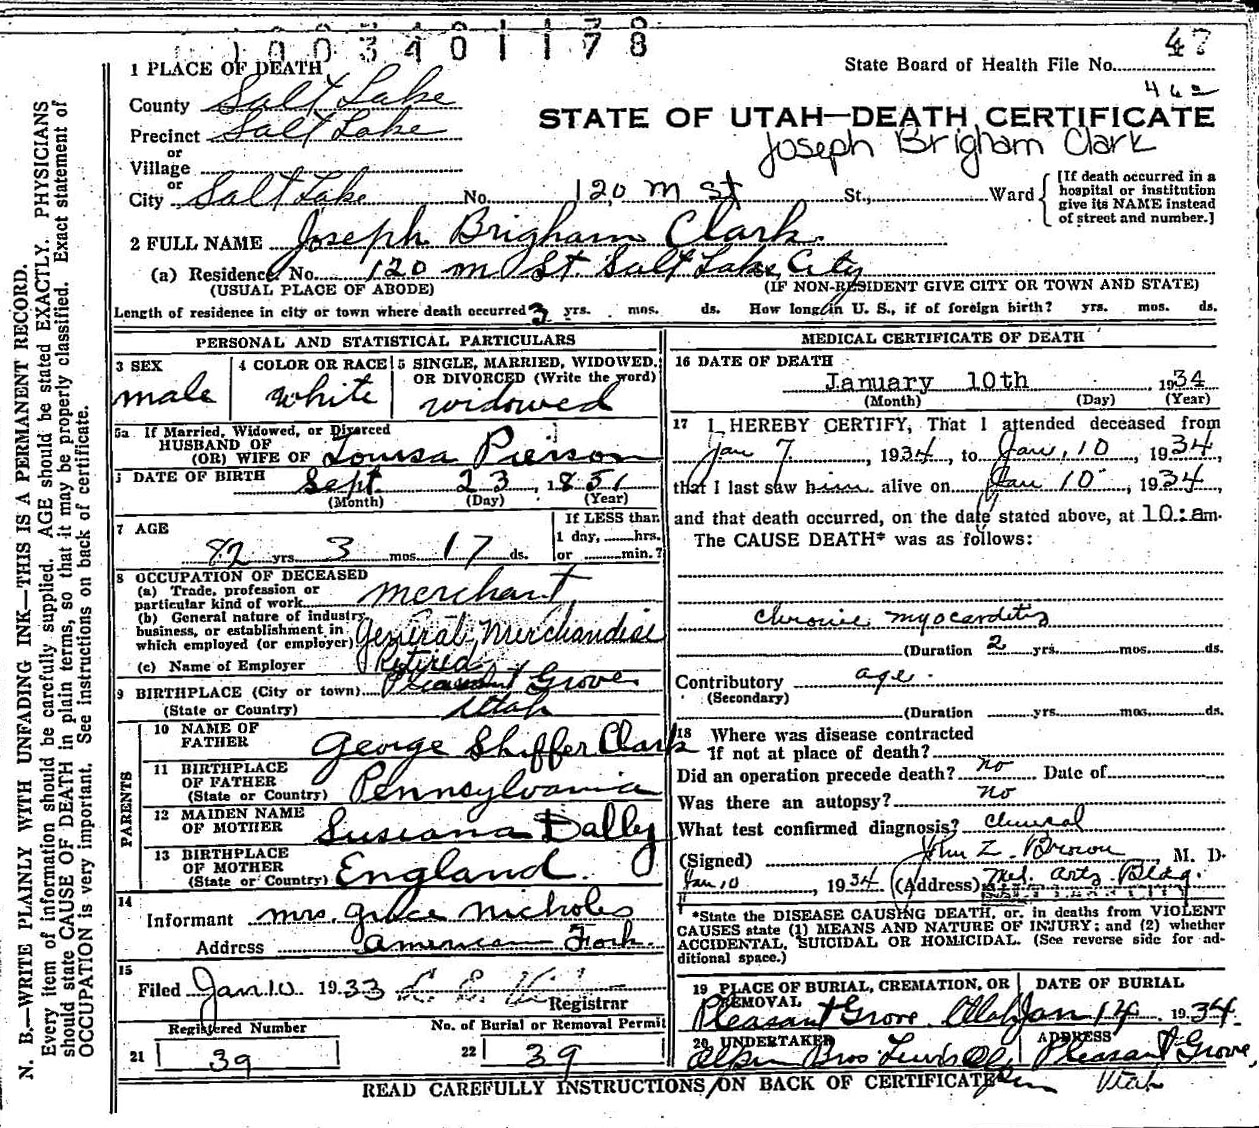 1003401178
47
1 PLACE OF DEATH
State Board of Health File No.
462
County Salt Lake
STATE OF UTAH—DEATH CERTIFICATE
Precinct Salt Lake
Joseph Brigham Clark
or
Village
or
City Salt Lake No. 120 M St St., Ward
[If death occurred in a
hospital or institution
give its NAME instead
of street and number.]
2 FULL NAME Joseph Brigham Clark.
(a) Residence. No. 120 M St. Salt Lake, City
(USUAL PLACE OF ABODE) (IF NON-RESIDENT GIVE CITY OR TOWN AND STATE)
Length of residence in city or town where death occurred 3 yrs. mos. ds. How long in U. S., if of foreign birth? yrs. mos. ds.
PERSONAL AND STATISTICAL PARTICULARS
3 SEX
male
4 COLOR OR RACE
white
5 SINGLE, MARRIED, WIDOWED,
OR DIVORCED (Write the word)
widowed
5a If Married, Widowed, or Divorced
HUSBAND OF
(OR) WIFE OF Louisa Pierson
DATE OF BIRTH Sept. 23, 1851
(Month) (Day) (Year)
7 AGE
82 yrs 3 mos. 17 ds.
If LESS than
1 day, hrs.
or min.?
8 OCCUPATION OF DECEASED
(a) Trade, profession or
particular kind of work merchant
(b) General nature of industry
business, or establishment in
which employed (or employer) General Merchandise
Retired
(c) Name of Employer
9 BIRTHPLACE (City or town) Pleasant Grove
(State or Country) Utah
PARENTS
10 NAME OF
FATHER George Shiffer Clark
11 BIRTHPLACE
OF FATHER
(State or Country) Pennsylvania
12 MAIDEN NAME
OF MOTHER Susiana Dally
13 BIRTHPLACE
OF MOTHER
(State or Country) England.
14
Informant Mrs. Grace Nicholes
Address American Fork.
15
Filed Jan 10 1933
Registrar
Registered Number
21 39
No. of Burial or Removal Permit
22 39
MEDICAL CERTIFICATE OF DEATH
16 DATE OF DEATH
January 10th 1934
(Month) (Day) (Year)
17 I HEREBY CERTIFY, That I attended deceased from
Jan 7, 1934, to Jan, 10, 1934,
that I last saw him alive on Jan 10, 1934,
and that death occurred, on the date stated above, at 10:am.
The CAUSE DEATH* was as follows:
chronic myocarditis
(Duration 2 yrs. mos. ds.
Contributory age.
(Secondary)
(Duration yrs. mos. ds.
18 Where was disease contracted
if not at place of death?
Did an operation precede death? no Date of
Was there an autopsy? no
What test confirmed diagnosis? clinical
(Signed) John Z. Brown M. D.
Jan 10, 1934 (Address) Med. Arts. Bldg.
*State the DISEASE CAUSING DEATH, or, in deaths from VIOLENT
CAUSES state (1) MEANS AND NATURE OF INJURY; and (2) whether
ACCIDENTAL, SUICIDAL OR HOMICIDAL. (See reverse side for ad-
ditional space.)
19 PLACE OF BURIAL, CREMATION, OR
REMOVAL
Pleasant Grove Utah
DATE OF BURIAL
Jan 14 1934.
20 UNDERTAKER
Bros
ADDRESS
Pleasant Grove,
Utah
READ CAREFULLY INSTRUCTIONS ON BACK OF CERTIFICATE
N. B.—WRITE PLAINLY WITH UNFADING INK—THIS IS A PERMANENT RECORD.
Every item of information should be carefully supplied. AGE should be stated EXACTLY. PHYSICIANS
should state CAUSE OF DEATH in plain terms, so that it may be properly classified. Exact statement of
OCCUPATION is very important. See instructions on back of certificate.